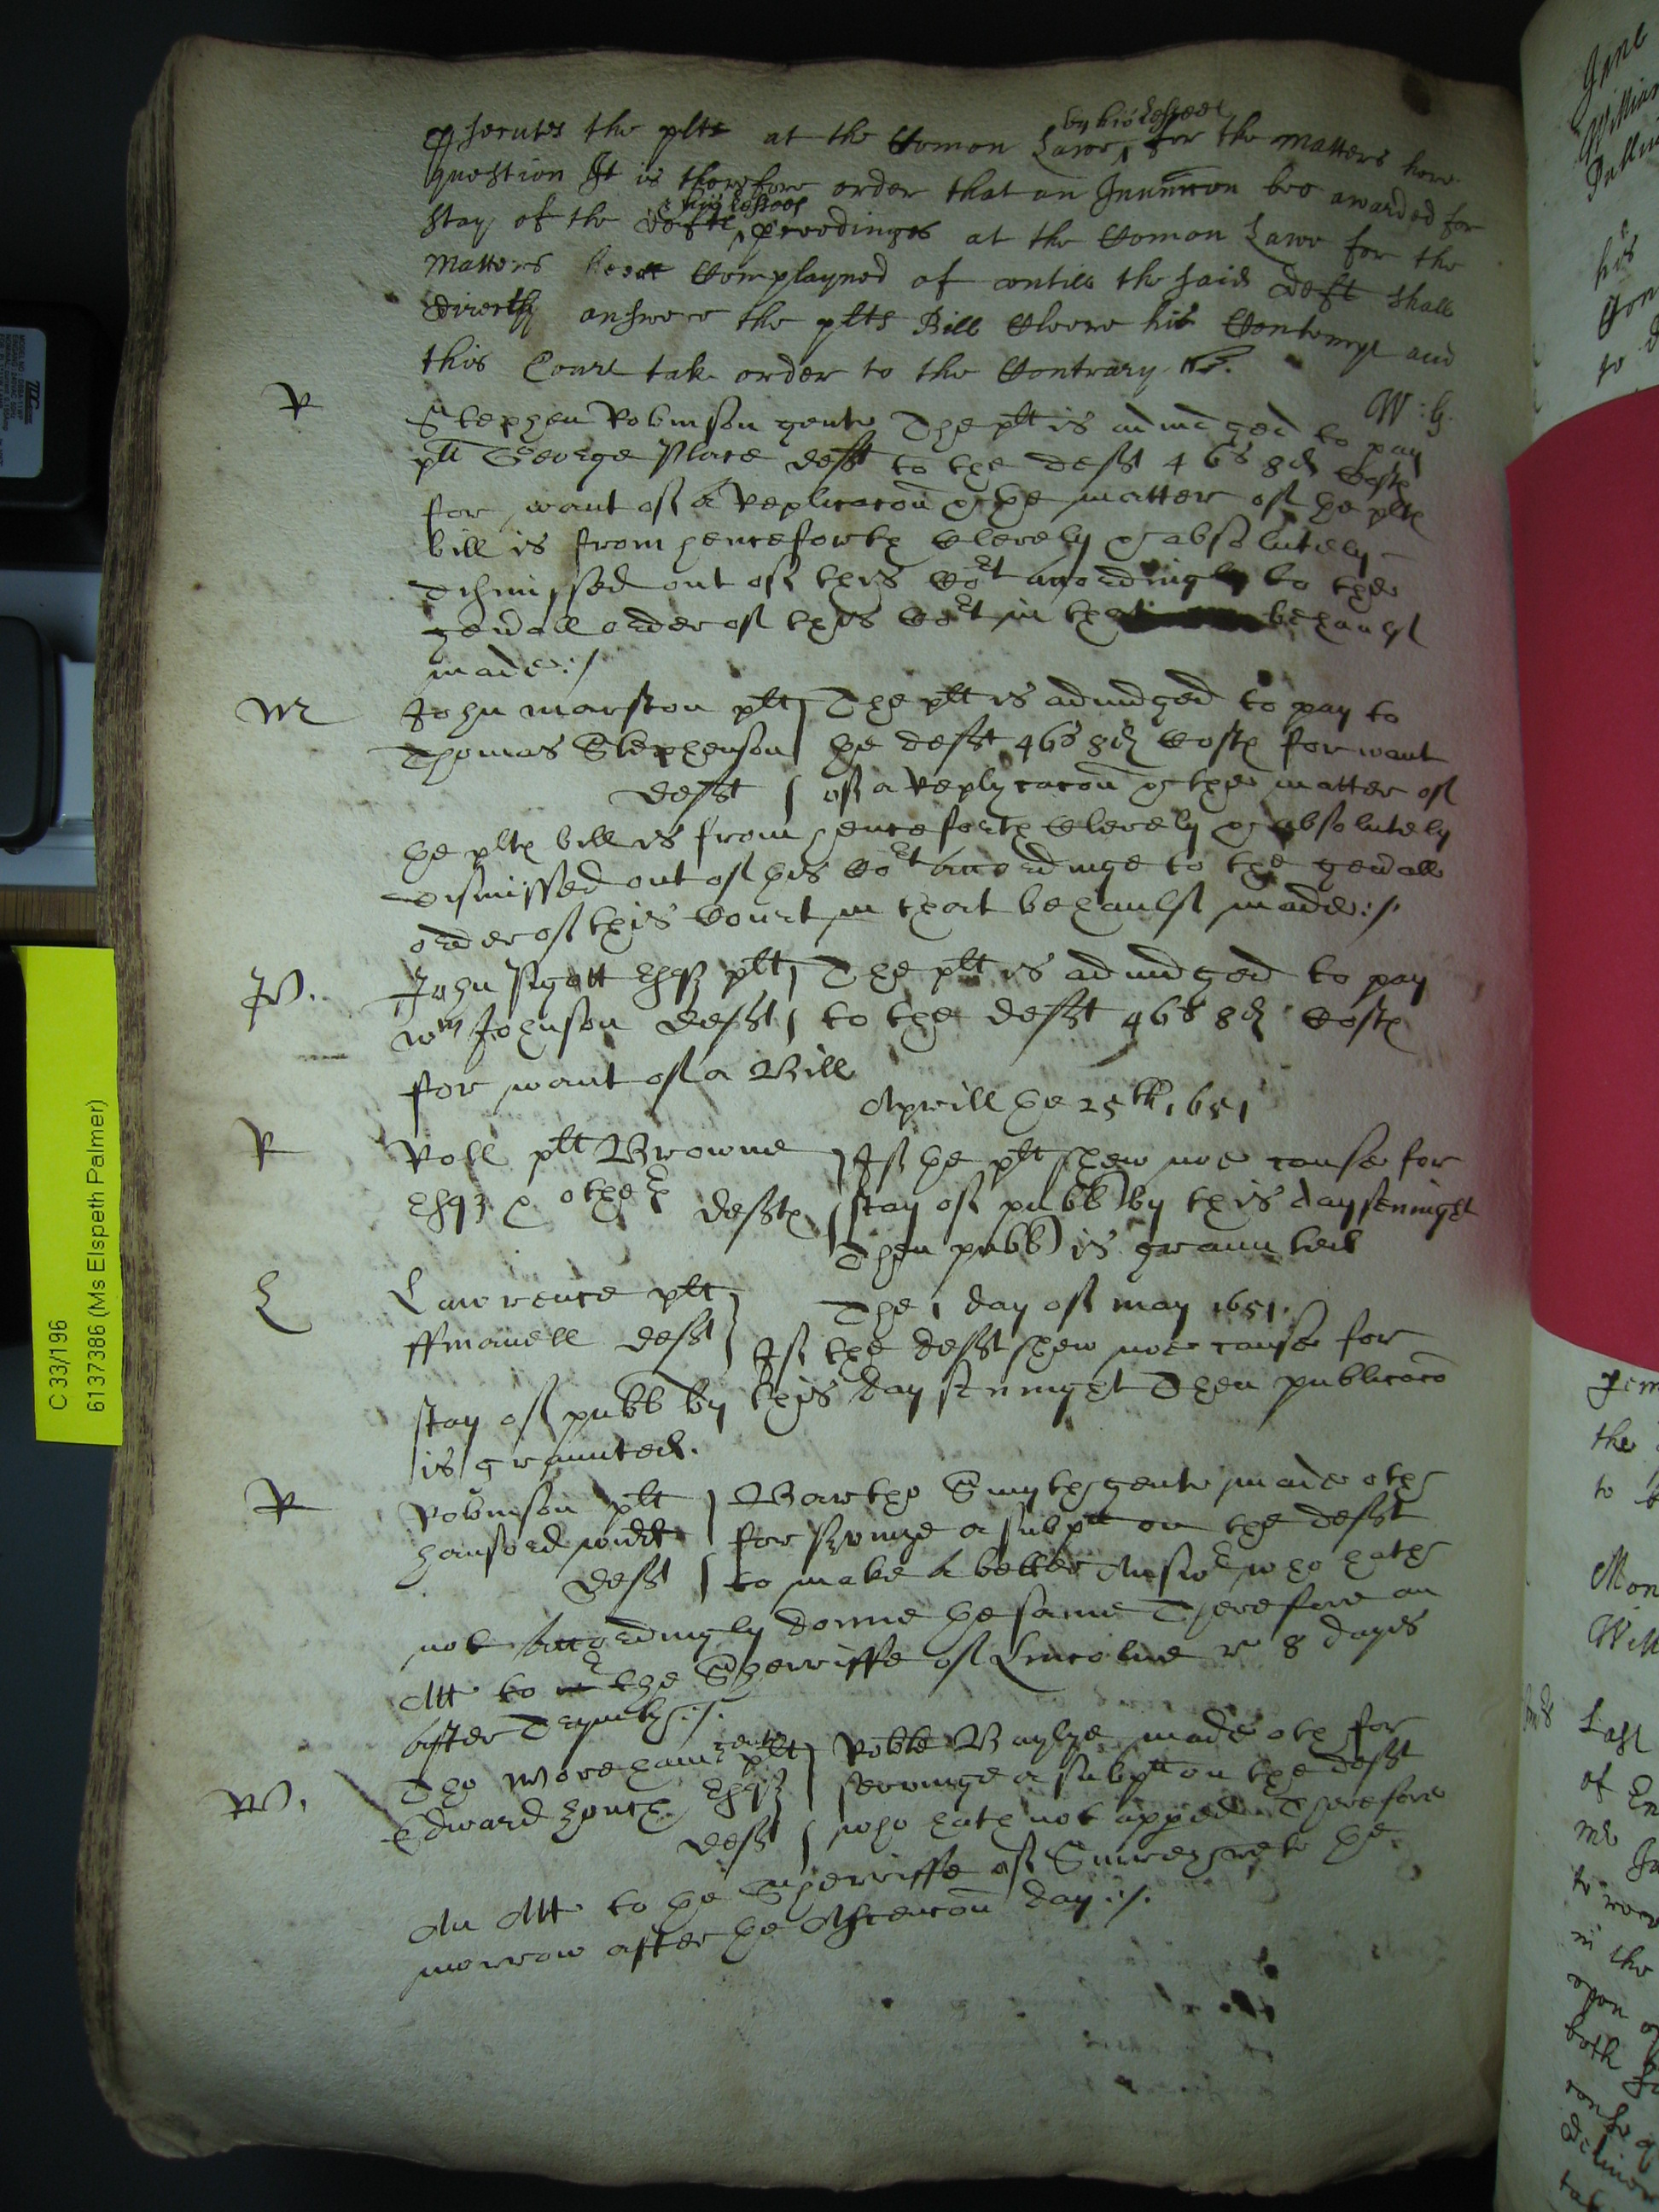 psecutes the plts at the Comon Lawe by his Lessees for the matters here
question It is therefore order that an Iniuncon bee awarded for
stay of the Defts & his Lessees pceedings at the Comon Lawe for the
matters here Complayned of untill the said Deft shall
directly answere the plts Bill Cleere his Contempt and
this Court take order to the Contrary
W: G:
R
Stephen Robinson gent The plt is adiudged to pay
plt George Place defft to the defft 46s 8d Costs
for want of a Replicacon & the matter of the plts
bill is from henceforth Clerely & absolutely
dismissed out of this Cort accordingly to the
genall order of this Cort in that behaulf
made:/
M
John Marston plt The plt is adiudged to pay to
Thomas Stephenson the defft 46s 8d Costs for want
defft of a Replycacon & the matter of
the plts bill is from henceforth Clerely & absolutely
dismissed out of this Cort accordinge to the genall
order of this Court in that behaulf made:/
P.
John Pigott Esqz plt The plt is adiudged to pay
Wm Johnson defft to the defft 46s 8d Costs
for want of a Bill
Aprill the 25th 1651
R
Roll plt Browne If the plt shew noe cause for
Esqz & others deffts stay of publ by this day senight
Then publ is graunted
L
Lawrence plt The 1 day of may 1651.
ffmauell defft If the defft shew noe cause for
stay of publ by this day senight Then publicaco
is graunted.
R
Robinson plt Barth Smyth gent made oth
hansord widd for servinge a subp on the defft
defft to make a better Answer who hath
not Accordingly donne the same Therefore an
Att to the Sherriffe of Lincolne r 8 dayes
after Trynity:/.
W.
Tho Worcham gent plt Robte Baylye made oth for
Edward Zouch Esqz servinge a subp on the defft
defft who hath not apped Therefore
An Att to the Sherriffe of Surrey ret the
morrow after the Ascencon day:/.
C 33/196
6137386 (Ms Elspeth Palmer)
Jane
his
the
to
Last
of
in the
upon
both